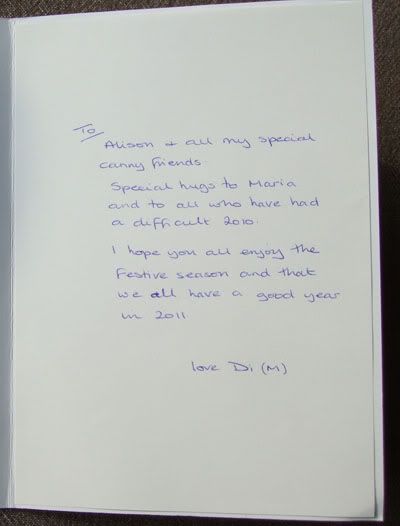 To
Alison + all my special
canny friends
Special hugs to Maria
and to all who have had
a difficult 2010.
I hope you all enjoy the
Festive season and that
we all have a good year
in 2011
love Di (M)